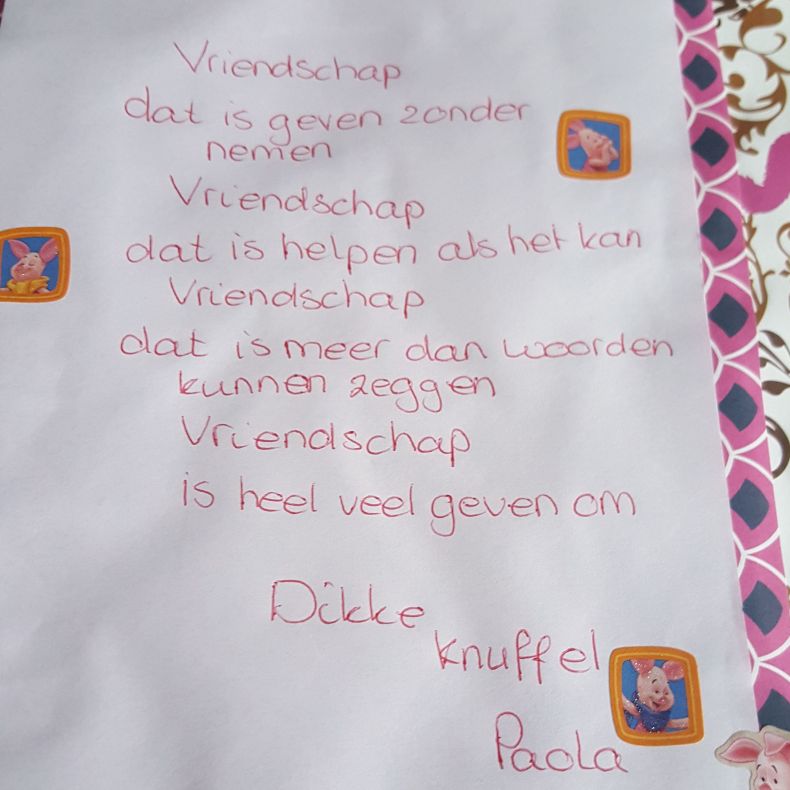 Vriendschap
dat is geven zonder
nemen
Vriendschap
dat is helpen als het kan
Vriendschap
dat is meer dan woorden
kunnen zeggen
Vriendschap
is heel veel geven om
Dikke
knuffel
Paola